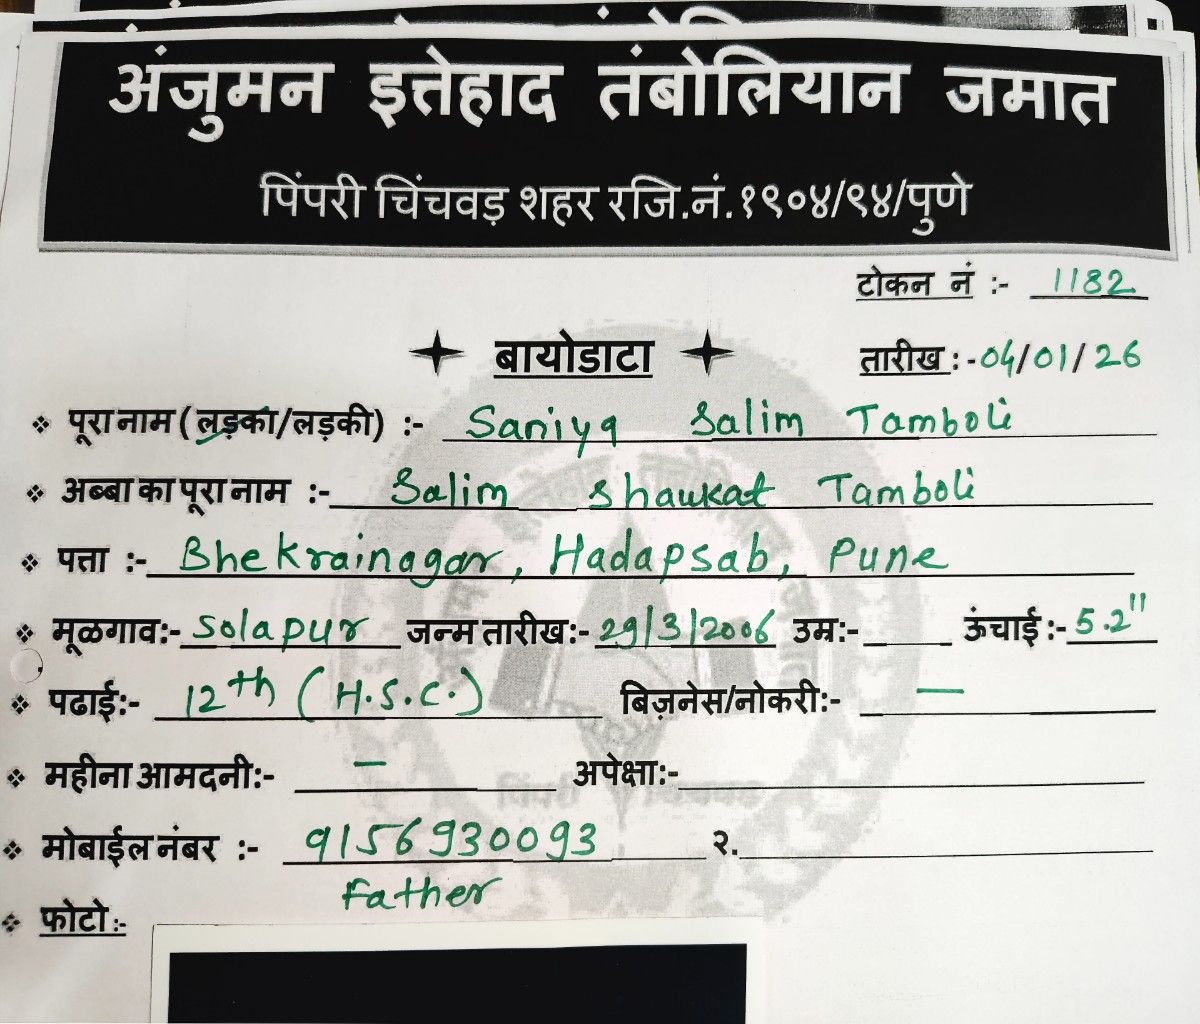 अंजुमन इत्तेहाद तंबोलियान जमात
पिंपरी चिंचवड़ शहर रजि.नं.१९०४/९४/पुणे
टोकन नं :- 1182
बायोडाटा
तारीख :- 04/01/26
पूरा नाम (लड़का/लड़की) :- Saniya Salim Tamboli
अब्बा का पूरा नाम :- Salim Shaukat Tamboli
पत्ता :- Bhekrainagar, Hadapsab, Pune
मूळगाव:- Solapur जन्म तारीख:- 29/3/2006 उम्र:- ऊंचाई :- 5.2"
पढाई:- 12th (H.S.C.) बिज़नेस/नोकरी:- —
महीना आमदनी:- — अपेक्षा:-
मोबाईल नंबर :- 9156930093 २.
Father
फोटो :-